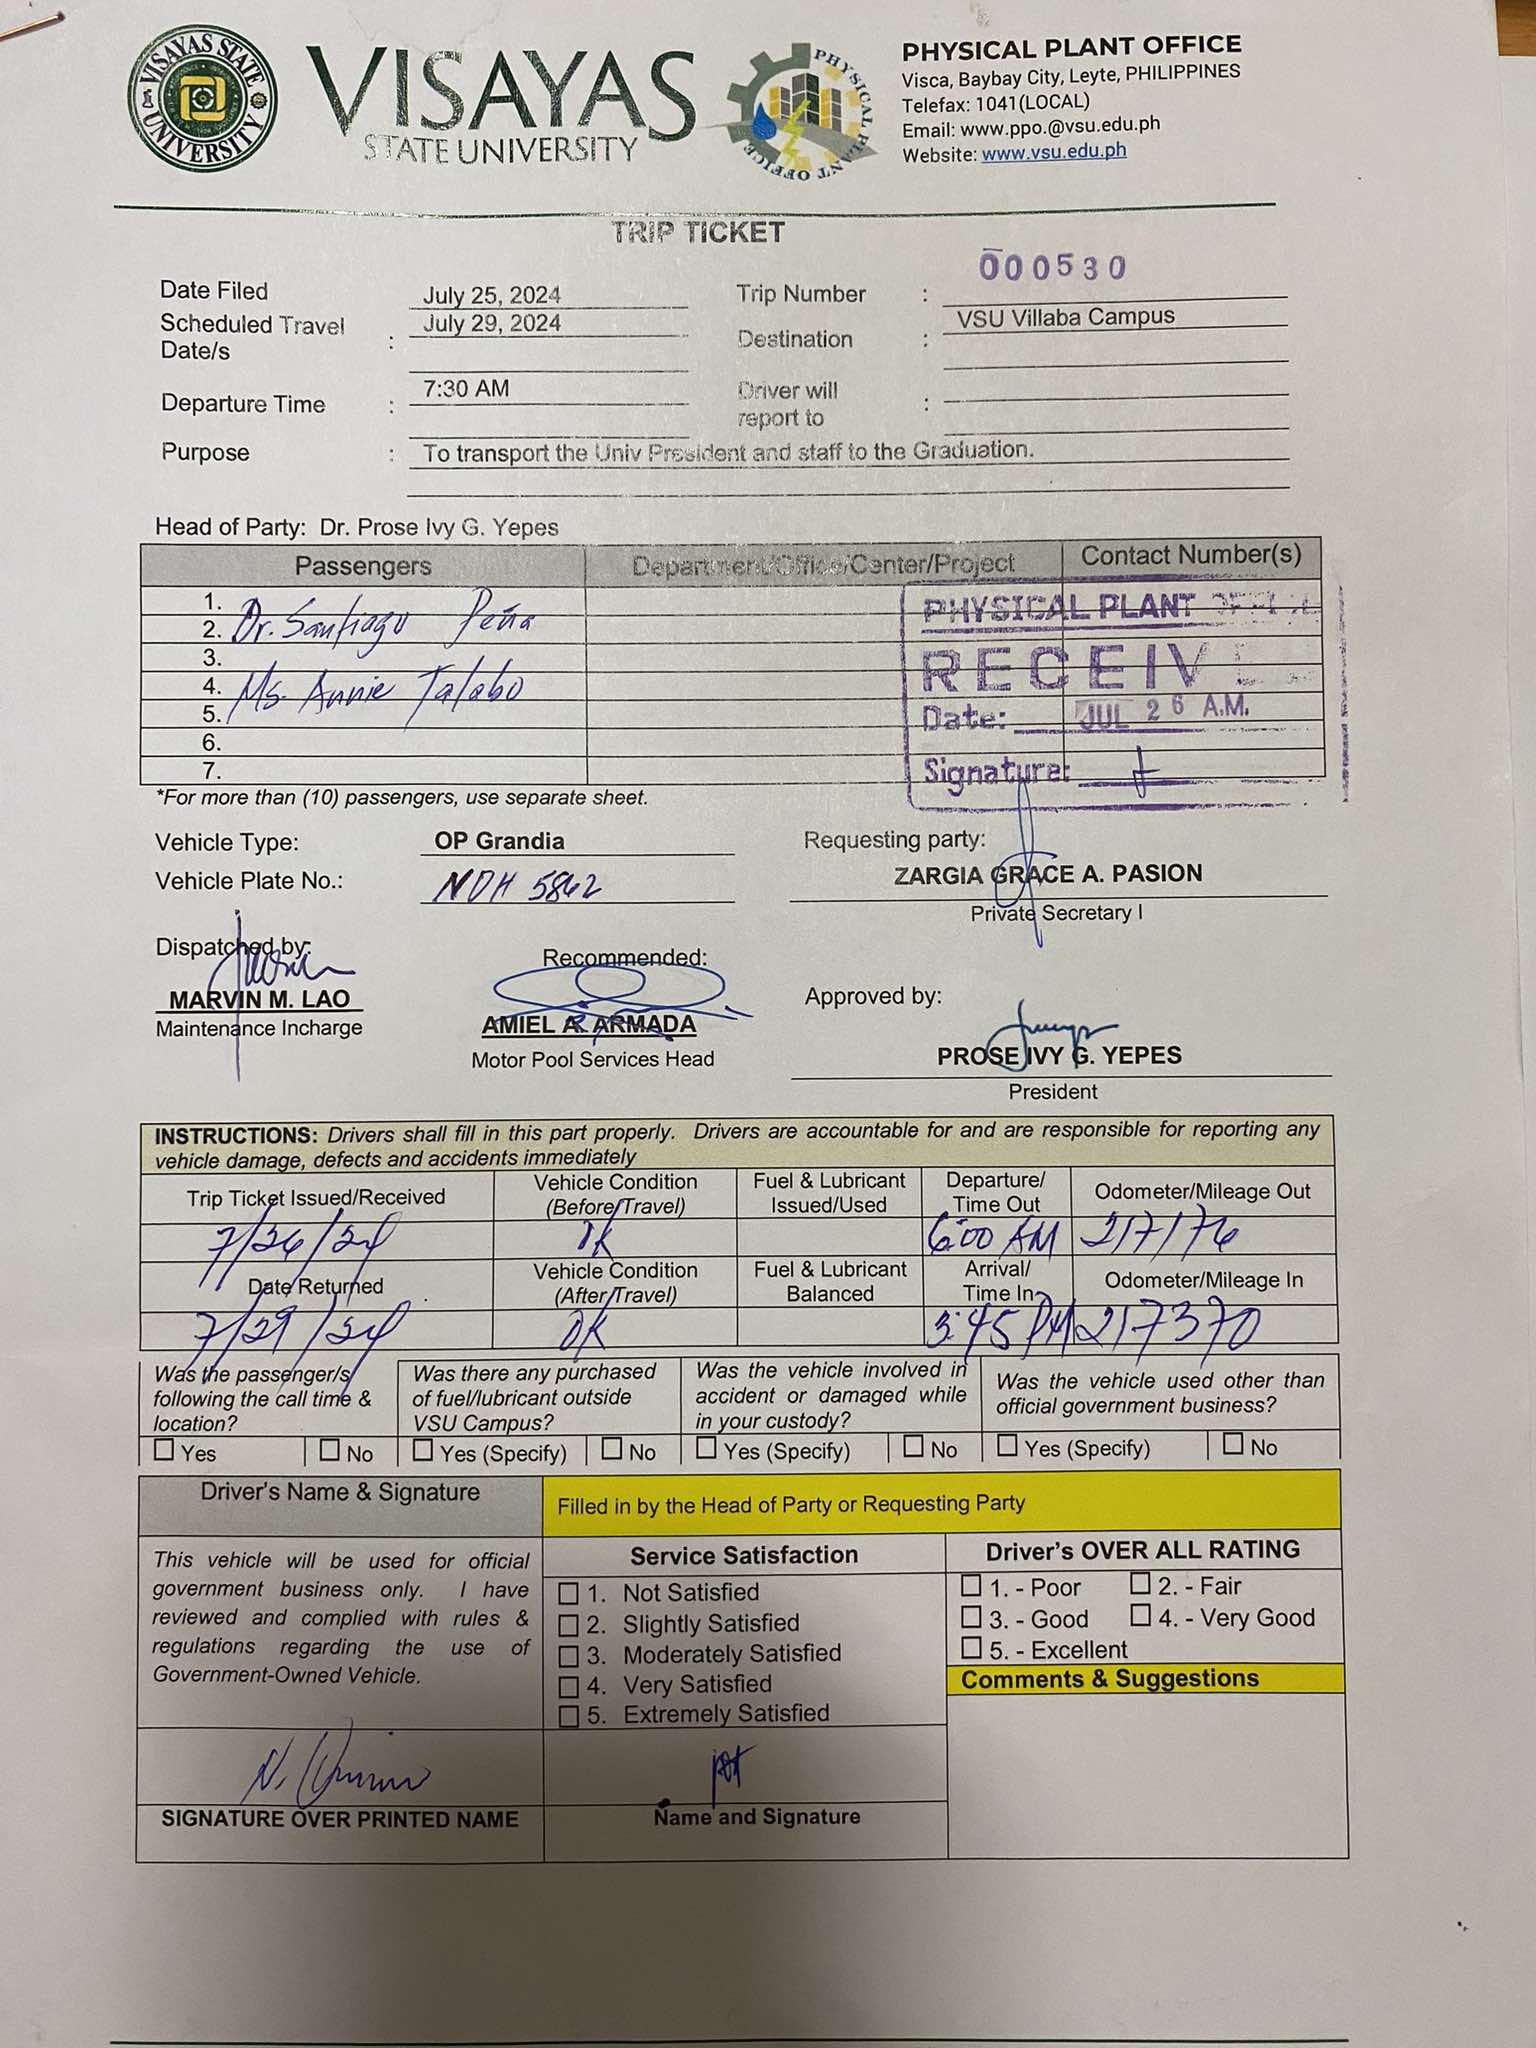 VISAYAS STATE UNIVERSITY
VISAYAS
STATE UNIVERSITY
PHYSICAL PLANT OFFICE
PHYSICAL PLANT OFFICE
Visca, Baybay City, Leyte, PHILIPPINES
Telefax: 1041(LOCAL)
Email: www.ppo.@vsu.edu.ph
Website: www.vsu.edu.ph
TRIP TICKET
000530
Date Filed July 25, 2024 Trip Number :
Scheduled Travel Date/s : July 29, 2024 Destination : VSU Villaba Campus
Departure Time : 7:30 AM Driver will report to :
Purpose : To transport the Univ President and staff to the Graduation.
Head of Party: Dr. Prose Ivy G. Yepes
Passengers Department/Office/Center/Project Contact Number(s)
1.
2. Dr. Santiago Peña
3.
4. Ms. Annie Talabo
5.
6.
7.
PHYSICAL PLANT OFFICE
RECEIV
Date: JUL 26 A.M.
Signature:
*For more than (10) passengers, use separate sheet.
Vehicle Type: OP Grandia Requesting party:
Vehicle Plate No.: NDH 5862 ZARGIA GRACE A. PASION
Private Secretary I
Dispatched by: Recommended:
MARVIN M. LAO AMIEL A. ARMADA Approved by:
Maintenance Incharge Motor Pool Services Head PROSE IVY G. YEPES
President
INSTRUCTIONS: Drivers shall fill in this part properly. Drivers are accountable for and are responsible for reporting any
vehicle damage, defects and accidents immediately
Trip Ticket Issued/Received Vehicle Condition (Before/Travel) Fuel & Lubricant Issued/Used Departure/ Time Out Odometer/Mileage Out
7/26/24 OK 6:00 AM 217176
Date Returned Vehicle Condition (After/Travel) Fuel & Lubricant Balanced Arrival/ Time In Odometer/Mileage In
7/29/24 OK 3:45 PM 217370
Was the passenger/s following the call time & location? Was there any purchased of fuel/lubricant outside VSU Campus? Was the vehicle involved in accident or damaged while in your custody? Was the vehicle used other than official government business?
Yes No Yes (Specify) No Yes (Specify) No Yes (Specify) No
Driver's Name & Signature Filled in by the Head of Party or Requesting Party
This vehicle will be used for official
government business only. I have
reviewed and complied with rules &
regulations regarding the use of
Government-Owned Vehicle.
Service Satisfaction
1. Not Satisfied
2. Slightly Satisfied
3. Moderately Satisfied
4. Very Satisfied
5. Extremely Satisfied
Driver's OVER ALL RATING
1. - Poor 2. - Fair
3. - Good 4. - Very Good
5. - Excellent
Comments & Suggestions
SIGNATURE OVER PRINTED NAME Name and Signature